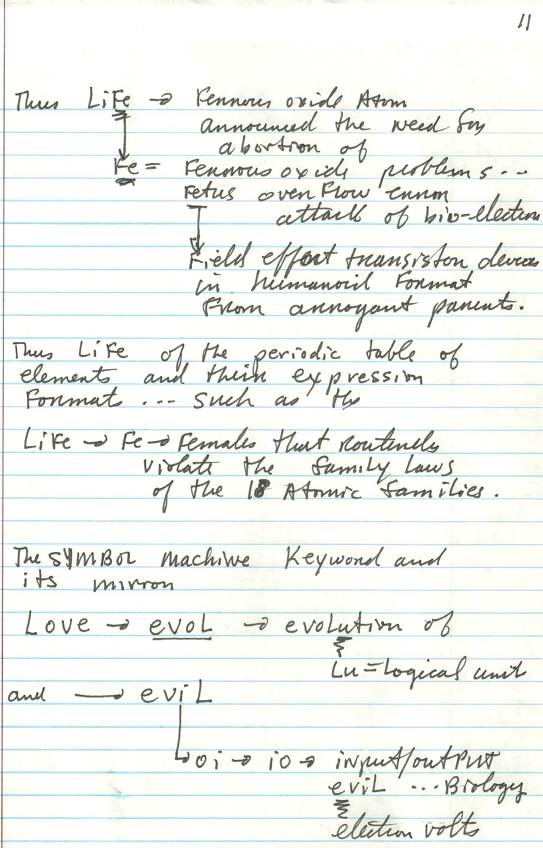 11
Thus LiFe → Ferrous oxide Atom
announced the need for
abortion of
Fe = Ferrous oxide problems...
Fetus overFlow error
attack of bio-electron
Field effect transistor devices
in humanoid Format
From arrogant parents.
Thus LiFe of the periodic table of
elements and their expression
Format ... Such as the
LiFe → Fe → Females that routinely
violate the family laws
of the 18 Atomic families.
The SYMBOL machine Keyword and
its mirror
Love → evoL → evolution of
Lu = Logical unit
and → eviL
oi → io → input/output
eviL ... Biology
electron volts